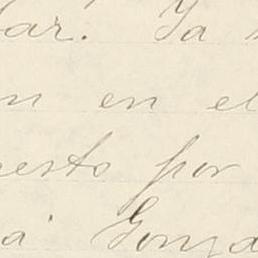 lar. Ya
en en el
uesto por
a Gonza